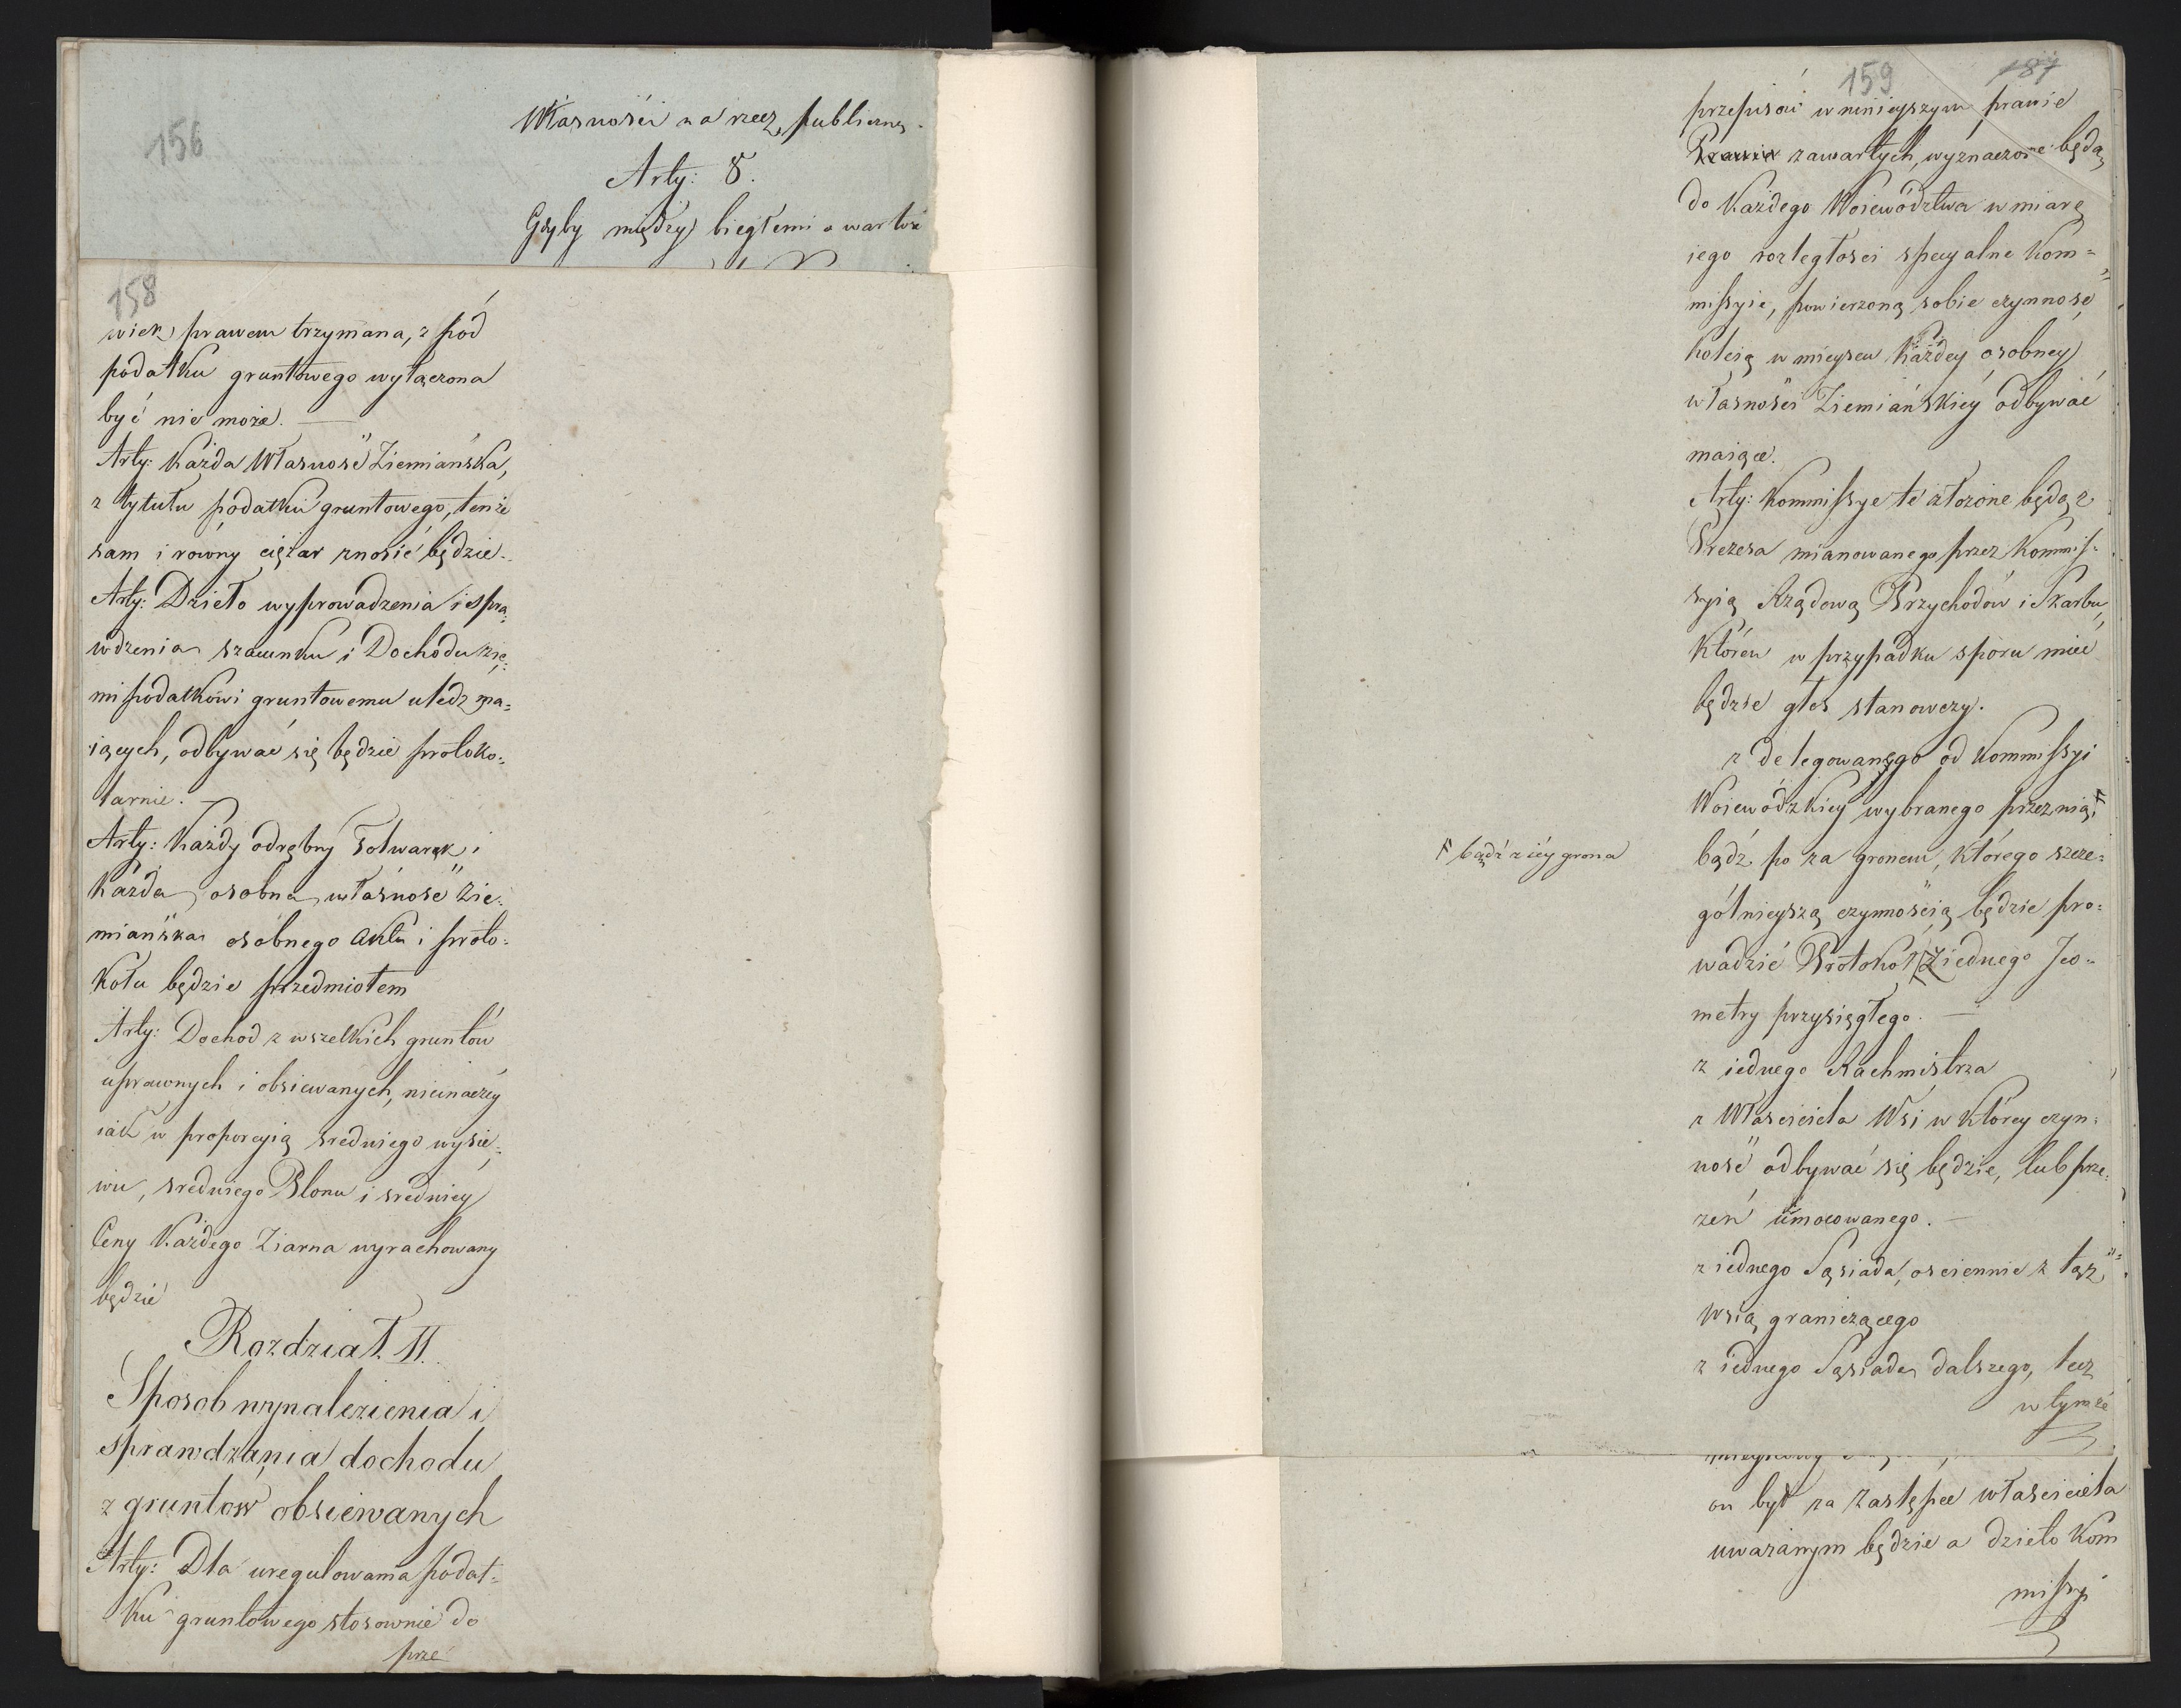 156
Własności na rzecz publiczną.
Arty: 8.
Gdyby między biegłemi o wartoś
158
wiek prawem trzymana, z pod
podatku gruntowego wyłączona
być nie może. —
Arty: Każda Własność Ziemiańska,
z tytułu podatku gruntowego, tenże
sam i równy ciężar znosić będzie.
Arty: Dzieło wyprowadzenia i spra=
wdzenia szacunku i Dochodu zie=
mi podatkowi gruntowemu uledz ma=
iących, odbywać się będzie protoko=
larnie. —
Arty: Każdy odrębny Folwarek i
każda osobna własność Zie=
miańska osobnego aktu i proto=
kołu będzie przedmiotem
Arty: Dochod z wszelkich gruntów
uprawnych i obsiewanych, nieinaczéy
iak w proporcyią sredniego wysie=
wu, sredniego Plonu i sredniey
Ceny Każdego Ziarna wyrachowany
będzie
Rozdział II.
Sposob wynalezienia i
sprawdzania dochodu
z gruntów obsiewanych
Arty: Dla uregulowania podat=
ku gruntowego stosownie do
prze
159
187
przepisów w ninieyszym prawie
Prawie zawartych, wyznaczone będą
do Każdego Woiewództwa w miarę
iego rozległości specyalne Kom=
missyie, powierzoną sobie czynność
koleią w mieyscu Każdey osobney
własności Ziemiańskiéy odbywać
maiące.
Arty: Kommissye te złożone będą z
Prezesa mianowanego przez Kommis=
syią Rządową Przychodów i Skarbu,
któren w przypadku sporu mieć
będzie głos stanowczy.
z delegowanego od Kommissyi
Woiewódzkiey wybranego przez nią, F
F bądź z iéy grona
bądź po za gronem, którego szcze=
gólnieyszą czynnością będzie pro=
wadzić Protokoł / z iednego Jeo=
metry przysięgłego. —
z iednego Rachmistrza
z Własciciela Wsi w którey czyn=
ność odbywać się będzie, lub prze=
zeń umocowanego. —
z iednego Sąsiada, osciennie z tąż
wsią graniczącego
z iednego Sąsiada dalszego, lecz
w tymże
on był za zastępce własciciela
uważanym będzie a dzieło Kom
missyi